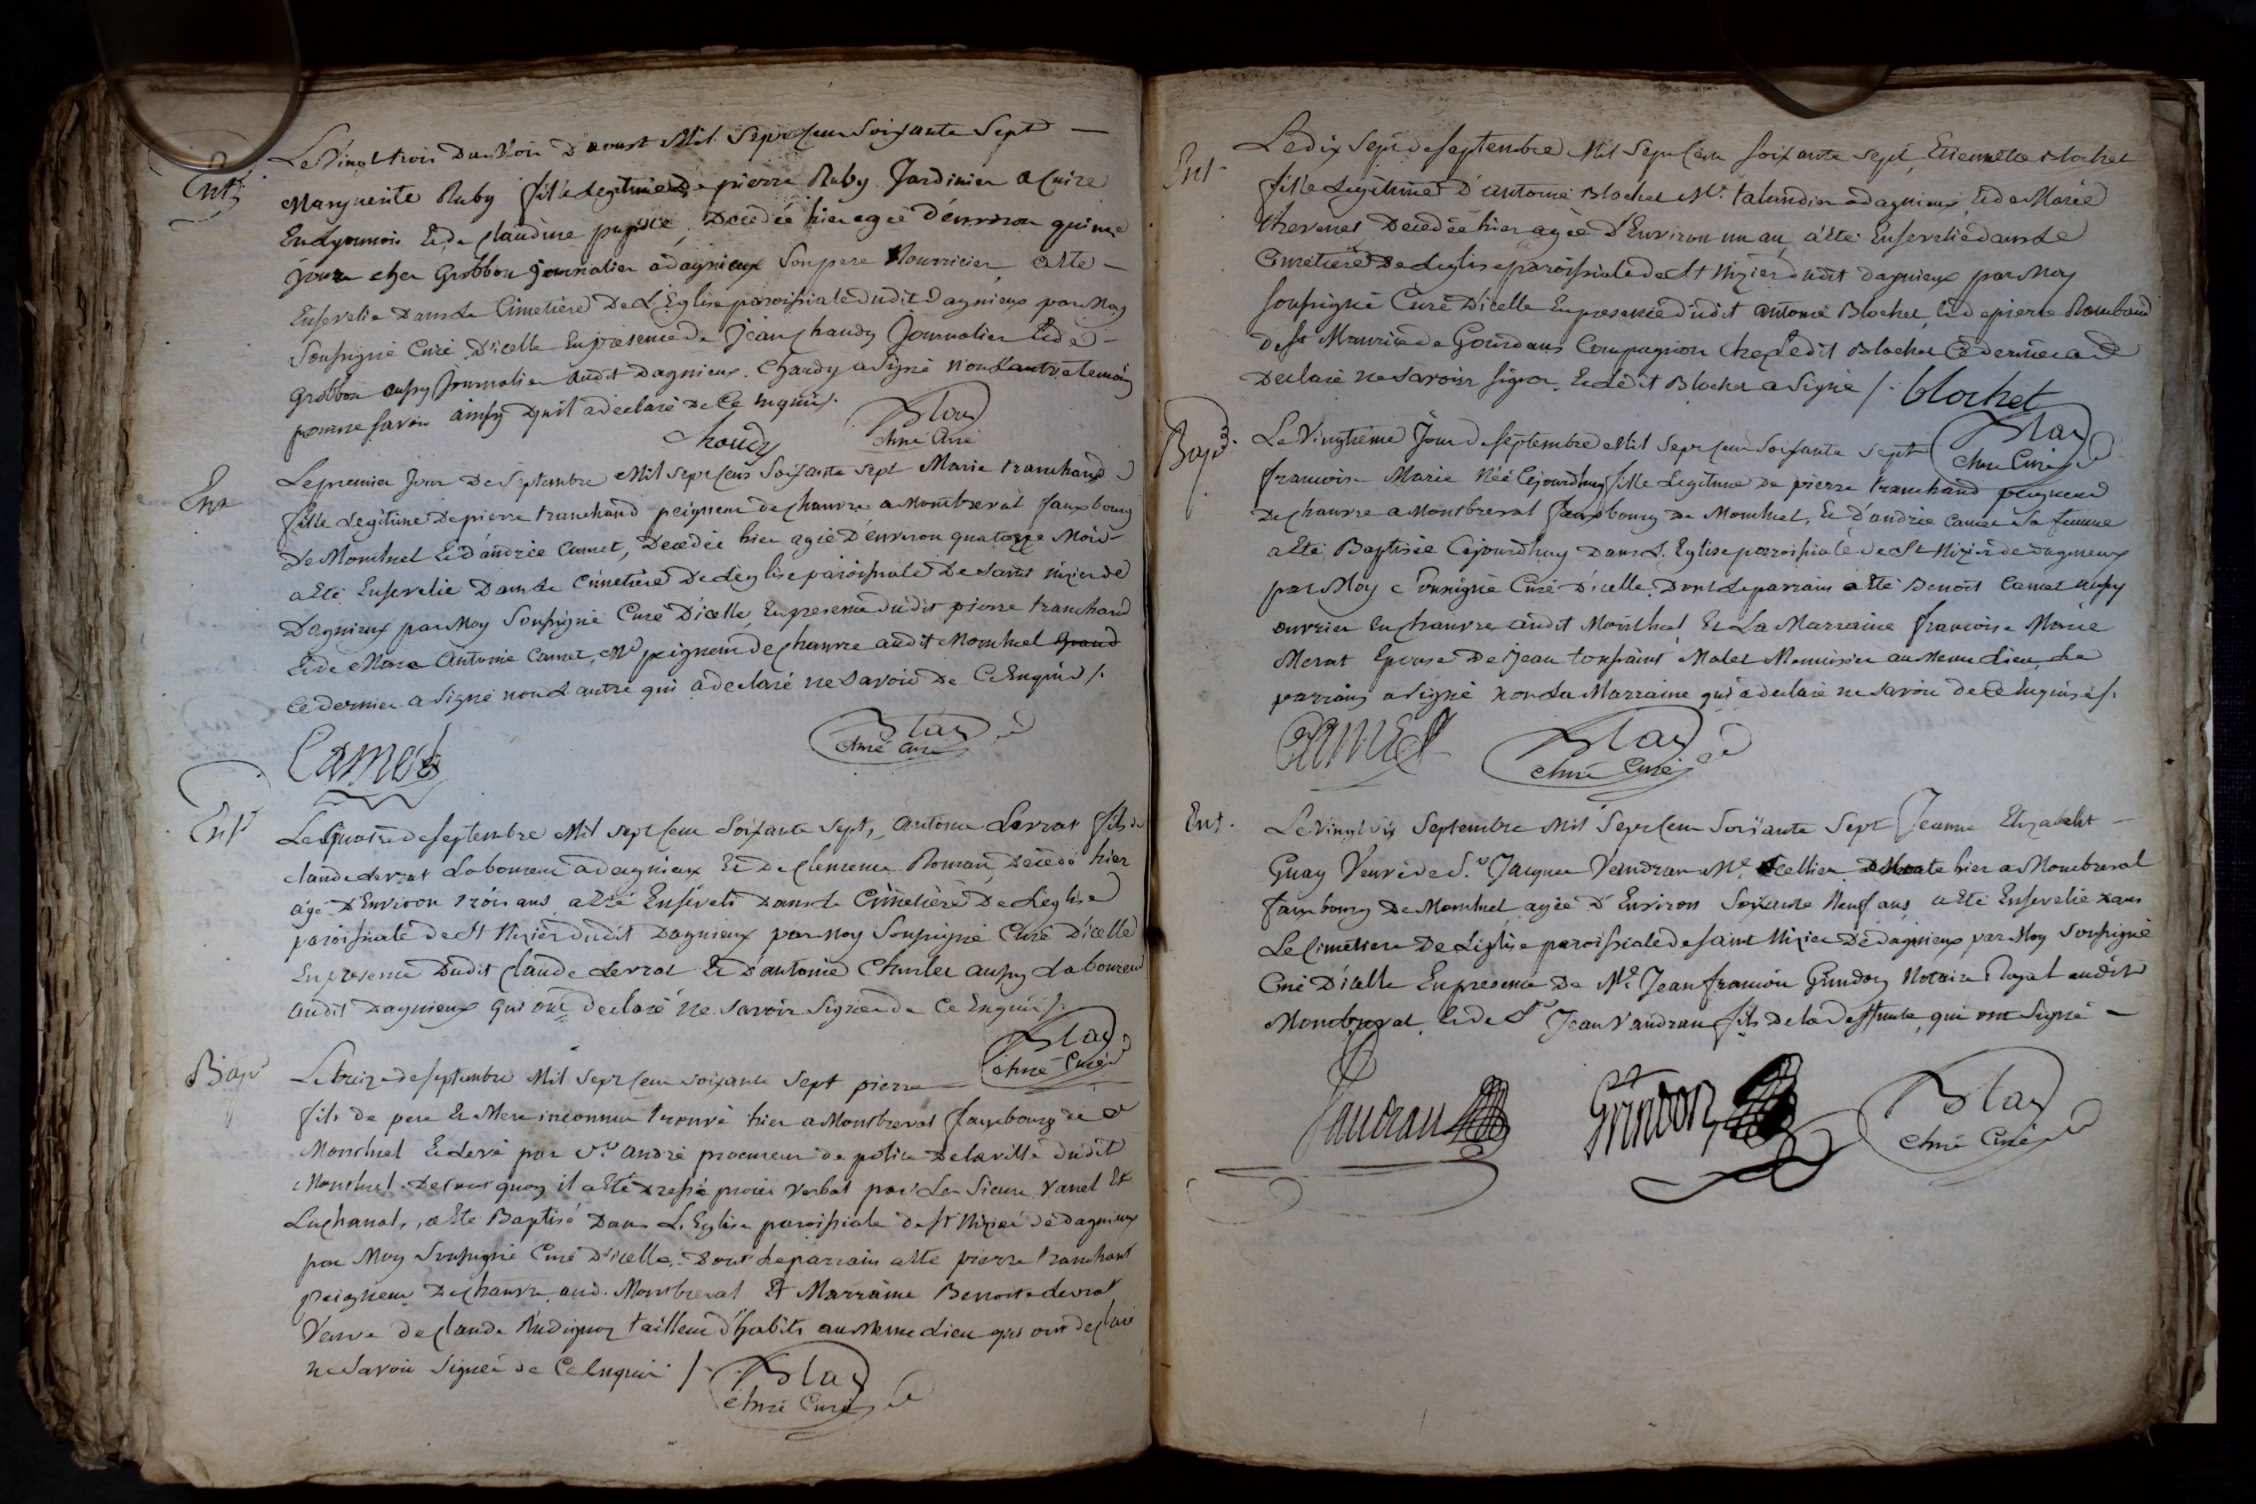 Ent.
Le Vingt trois Du Mois D'aoust Mil Sept Cens Soixante Sept —
Marguerite Ruby fille Legitime De pierre Ruby Jardinier a Cuire
En Lyonnois Et De Claudine Decedée hier agée d'environ quinze
jours chez Grobbon journalier a dagnieux Son pere Nourricier a Eté —
Ensevelie Dans Le Cimetiere De L'Eglise paroissiale dudit dagnieux par Moy
Soussigné Curé D'icelle En presence De Jean Chaudy Journalier Et de
Grobbon aussy Journalier audit Dagnieux. Chaudy a Signé Non L'autre temoin
pour ne savoir ainsy qu'il a declaré De Ce Enquis.
Chaudy
Blay
Curé
Ent
Le premier Jour De Septembre Mil Sept Cens Soixante Sept Marie tranchand
fille Legitime De pierre tranchand peigneur de chanvre a Montbreval fauxbourg
De Montluel Et D'andrée Camet, Decedée hier agée D'environ quatorze Mois
a Eté Ensevelie Dans Le Cimetiere De L'eglise paroissiale De Saint nizier de
Dagnieux par Moy Soussigné Curé D'icelle, En presence dudit pierre tranchand
Et de Antoine Camet, Md peigneur de chanvre audit Montluel
Ce dernier a Signé non L'autre qui a declaré ne Savoir De Ce Enquis /.
Camet
Blay
Curé
Ent
Le Quatre de Septembre Mil Sept Cens Soixante Sept, Antoine Levrat fils de
Claude Levrat Laboureur a dagnieux Et De Clemence Roman, Decedé hier
agé D'Environ trois ans a Eté Enseveli Dans Le Cimetiere De L'eglise
paroissiale De St Nizier dudit Dagnieux par Moy Soussigné Curé D'icelle
En presence Dudit Claude Levrat Et D'antoine Charlet aussy Laboureur
audit Dagnieux qui ont declaré Ne Savoir Signer de Ce Enquis /.
Blay
Curé
Bap
Le treize de Septembre Mil Sept Cens Soixante Sept pierre —
fils de pere Et Mere inconnus trouvé hier a Montbreval fauxbourg de
Montluel Et Levé par Sr André procureur de police De la ville dudit
Montluel. De tout quoy il a Eté dressé procés verbal par Les Sieurs Vanel Et
Luchanal, a Eté Baptisé Dans L'Eglise paroissiale de St Nizier de dagnieux
par Moy Soussigné Curé D'icelle. Dont Le parrain a Eté pierre tranchant
peigneur De chanvre aud. Montbreval Et Marraine Benoite Levrat
Veuve de Claude tailleur d'habits au Meme Lieu qui ont declaré
ne Savoir Signer de Ce Enquis /.
Blay
Curé
Ent.
Le dix Sept de Septembre Mil Sept Cens Soixante Sept, Etiennette Blochet
fille Legitime D'antoine Blochet Me taliandier a dagnieux Et de Marie
thevenet Decedée hier agée D'Environ un an, a Eté Ensevelie dans Le
Cimetiere De L'eglise paroissiale De St Nizier dudit Dagnieux par Moy
Soussigné Curé D'icelle En presence dudit antoine Blochet, Et de pierre Rambaud
De St Maurice de Gourdans Compagnon chez Ledit Blochet Ce dernier a
Declaré Ne Savoir Signer, Et Ledit Blochet a Signé /. blochet
Blay
Curé
Bap.
Le Vingtieme Jour de Septembre Mil Sept Cens Soixante Sept
francoise Marie Née Cejourdhuy fille Legitime De pierre tranchand peigneur
De chanvre a Montbreval fauxbourg De Montluel, Et d'andrée Camet Sa femme
a Eté Baptisée Cejourdhuy Dans L'Eglise parroissiale De St Nizier de Dagnieux
par Moy Soussigné Curé D'icelle. Dont Le parrain a Eté Benoit Camet aussy
ouvrier En chanvre audit Montluel Et La Marraine francoise Marie
Merat Epouse De Jean toussaint Malet Menuisier au Meme Lieu, Le
parrain a Signé Non La Marraine qui a declaré ne Savoir de Ce Enquis /.
CAMET
Blay
Curé
Ent.
Le Vingt Six Septembre Mil Sept Cens Soixante Sept Jeanne Elizabeth —
Guay Veuve de Sr Jacques Vandran Me Sellier hier a Montbreval
fauxbourg De Montluel agée D'Environ Soixante Neuf ans a Eté Ensevelie Dans
Le Cimetiere De L'eglise paroissiale de Saint Nizier De dagnieux par Moy Soussigné
Curé D'icelle En presence De Me Jean francois Grindon Notaire Royal audit
Montbreval, Et de Sr Jean Vandran fils De la Deffunte, qui ont Signé —
Vandran
Grindon
Blay
Curé